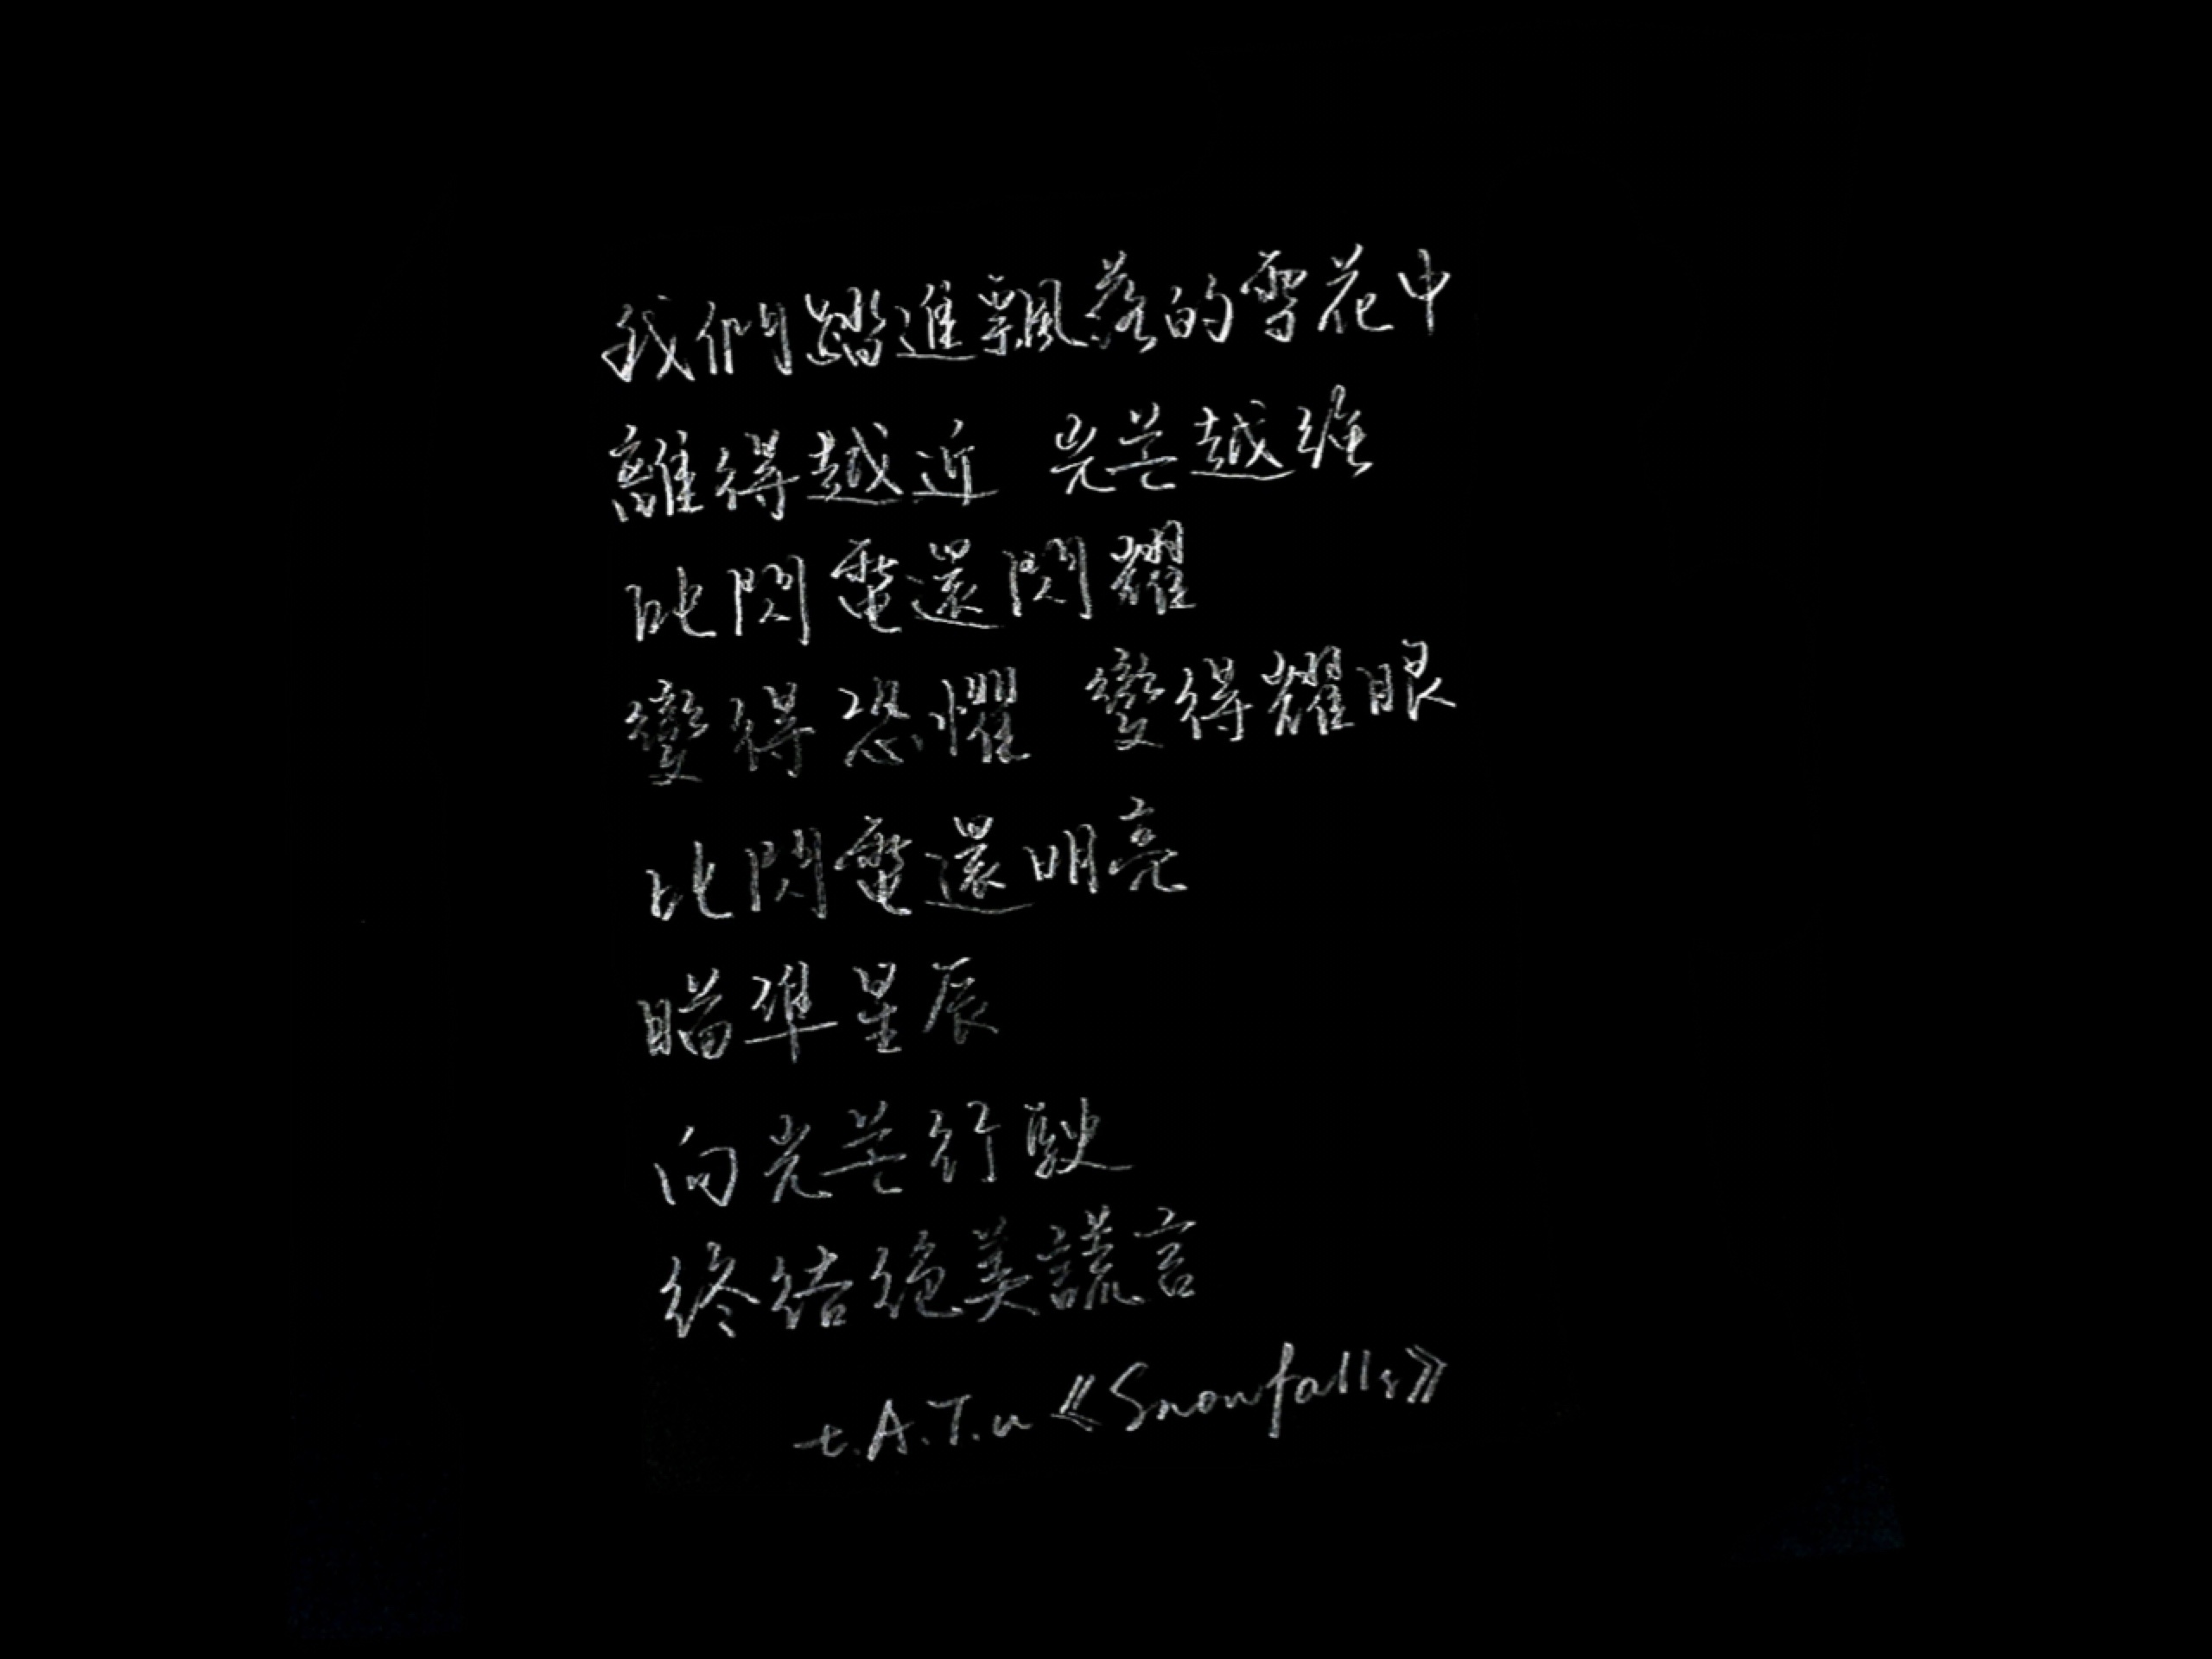 我們踏進飄落的雪花中
離得越近 光芒越強
比閃電還閃耀
變得恐懼 變得耀眼
比閃電還明亮
瞄準星辰
向光芒行駛
終结絕美謊言
t.A.T.u《Snowfalls》